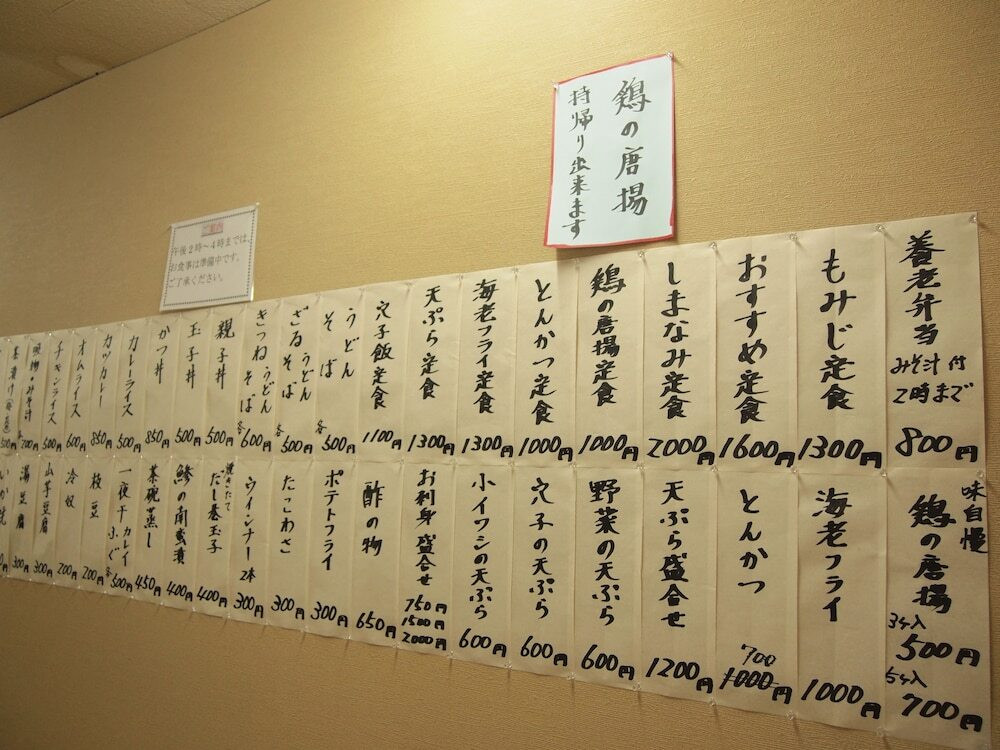 鶏の唐揚
持帰り出来ます
ご案内
午後2時～4時までは、
お食事は準備中です。
ご了承ください。
養老弁当
みそ汁付
2時まで
800円
もみじ定食
1300円
おすすめ定食
1600円
しまなみ定食
2000円
鶏の唐揚定食
1000円
とんかつ定食
1000円
海老フライ定食
1300円
天ぷら定食
1300円
穴子飯定食
1100円
うどん
そば
各500円
ざるうどん
そば
各500円
きつねうどん
そば
各600円
親子丼
500円
玉子丼
500円
かつ丼
850円
カレーライス
500円
カツカレー
850円
オムライス
600円
チキンライス
500円
吸物・みそ汁
各200円
500円
味自慢
鶏の唐揚
3ケ入
500円
5ケ入
700円
海老フライ
1000円
とんかつ
700
1000円
天ぷら盛合せ
1200円
野菜の天ぷら
600円
穴子の天ぷら
600円
小イワシの天ぷら
600円
お刺身盛合せ
750円
1500円
2000円
酢の物
650円
ポテトフライ
300円
たこわさ
300円
ウインナー2本
300円
焼きたて
だし巻玉子
400円
鯵の南蛮漬
400円
茶碗蒸し
450円
一夜干 カレイ
ふぐ
各500円
枝豆
200円
冷奴
200円
山芋豆腐
300円
湯豆腐
300円